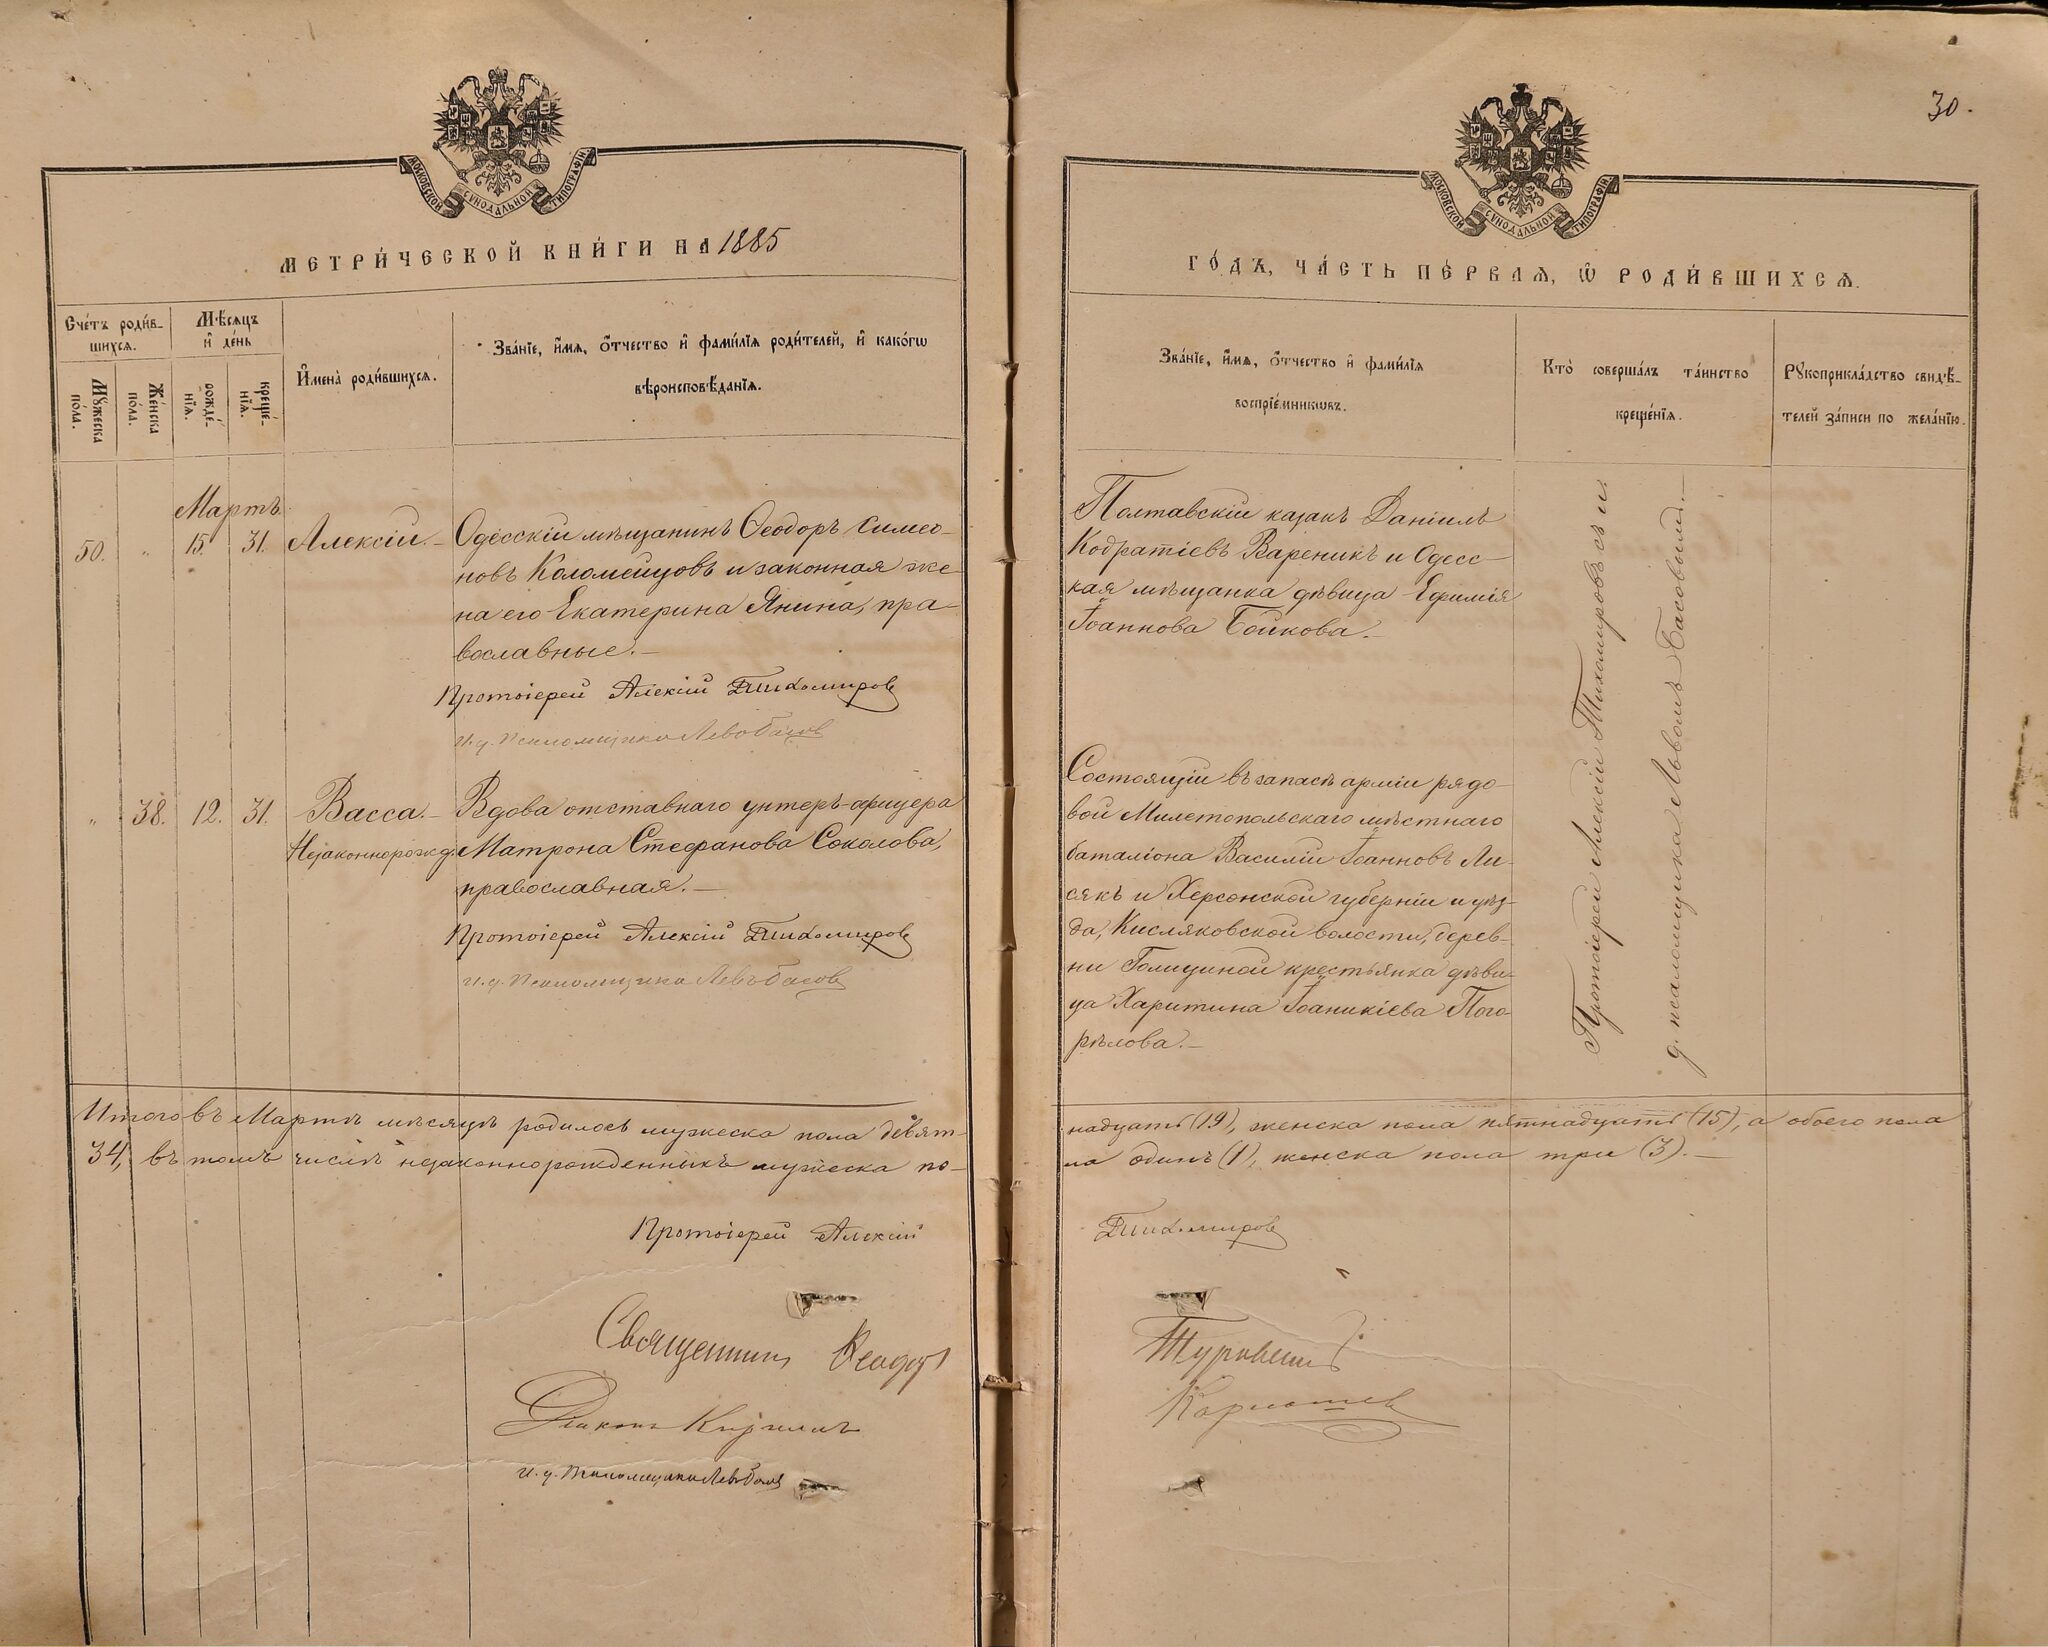 30.
МОСКОВСКОЙ СѴНОДАЛЬНОЙ ТИПОГРАФІИ
МОСКОВСКОЙ СѴНОДАЛЬНОЙ ТИПОГРАФІИ
МЕТРИ́ЧЕСКОЙ КНИ́ГИ НА 1885
ГО́ДЪ, ЧА́СТЬ ПЕ́РВАѦ, Ѡ РОДИ́ВШИХСѦ.
Сче́тъ роди́в-
шихсѧ.
Мꙋжеска
по́ла.
Же́нска
по́ла.
Мѣ́сѧцъ
и҆ де́нь
рожде́-
нїѧ.
креще́-
нїѧ.
И҆мена̀ роди́вшихсѧ.
Зва́нїе, и҆́мѧ, ѻ҆́тчество и҆ фами́лїѧ роди́телей, и҆ како́гѡ
вѣроисповѣ́данїѧ.
Зва́нїе, и҆́мѧ, ѻ҆́тчество и҆ фами́лїѧ
воспрїе́мникѡвъ.
Кто̀ соверша́лъ та́инство
креще́нїѧ.
Рꙋкоприкла́дство свидѣ́-
телей за́писи по жела́нїю.
Мартъ
50. „ 15. 31. Алексій. –
Одесскій мѣщанинъ Ѳеодоръ Симео-
новъ Коломейцовъ и законная же-
на его Екатерина Янина, пра-
вославные. –
Протоіерей Алексій Тихомировъ
и. д. Псаломщика Левъ Басовъ
Полтавскій казакъ Даніилъ
Кодратіевъ Вареникъ и Одесс-
кая мѣщанка дѣвица Ефимія
Іоаннова Бойкова. –
Протоіерей Алексій Тихомировъ съ и.
д. псаломщика Львомъ Басовымъ. –
„ 38. 12. 31. Васса. –
Незаконнорожд.
Вдова отставнаго унтеръ-офицера
Матрона Стефанова Соколова,
православная. –
Протоіерей Алексій Тихомировъ
и. д. Псаломщика Левъ Басовъ
Состоящій въ запасѣ арміи рядо-
вой Милетопольскаго мѣстнаго
баталіона Василій Іоанновъ Ли-
сякъ и Херсонской губерніи и уѣз-
да, Кисляковской волости, дерев-
ни Голициной крестьянка дѣви-
ца Харитина Іоаникіева Пого-
рѣлова. –
Итого въ Мартѣ мѣсяцѣ родилось мужеска пола девят-
надцать (19), женска пола пятнадцать (15), а обоего пола
34, въ томъ числѣ незаконнорожденныхъ мужеска по-
ла одинъ (1), женска пола три (3). –
Протоіерей Алексій
Тихомировъ
Священникъ Ѳеодоръ
Діаконъ Кириллъ
и. д. Псаломщика Левъ Басовъ